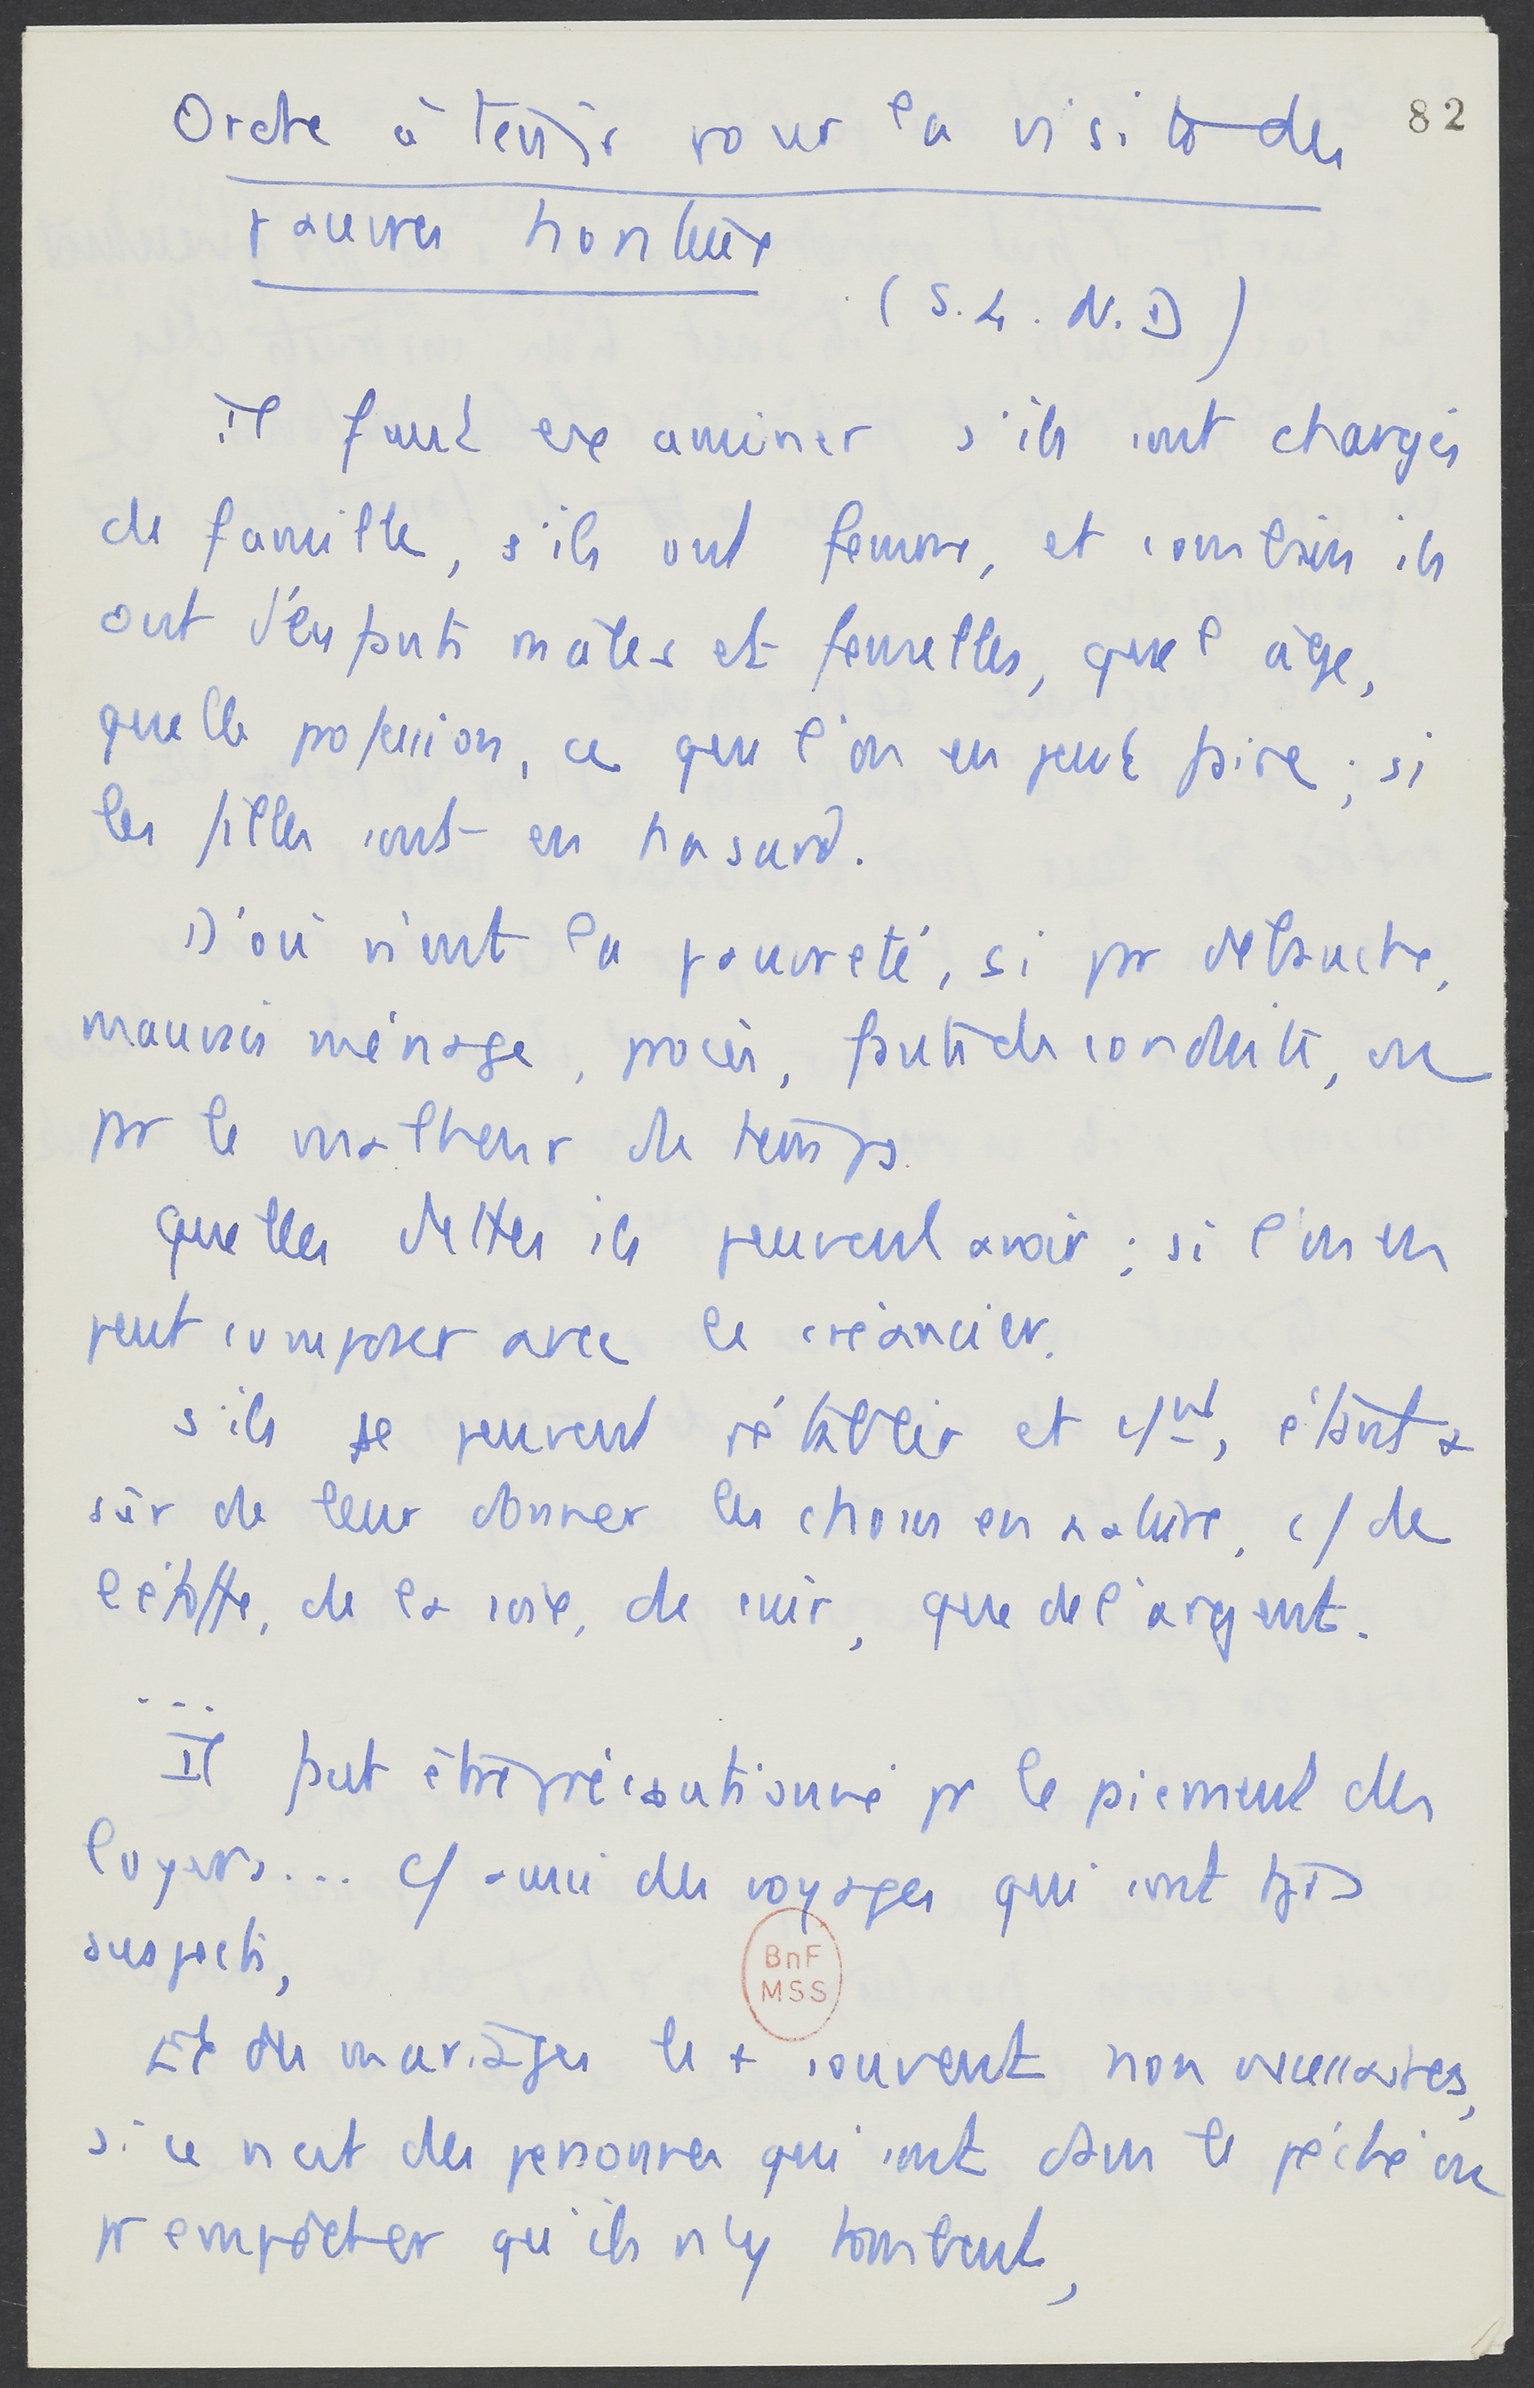 82
Ordre à tenir pour la visite des
pauvres honteux
(S. L. N. D)
Il faut examiner s'ils sont chargés
de famille, s'ils ont femme, et combien ils
ont d'enfants mâles et femelles, quel âge,
quelle profession, ce que l'on en peut faire ; si
les filles sont en hasard.
D'où vient la pauvreté, si par débauche,
mauvais ménage, procès, faute de conduite, ou
par le malheur du temps.
Quelles dettes ils peuvent avoir ; si l'on en
peut composer avec le créancier.
S'ils se peuvent rétablir et c/nt, étant +
sûr de leur donner les choses en nature, c/ de
l'étoffe, de la soie, de cuir, que de l'argent.
...
Il faut être précautionné pr le piement des
loyers... c/ aussi des voyages qui sont très
suspects,
Et des mariages le + souvent non nécessaires,
si ce n'est des personnes qui sont dans le péché ou
pr empêcher qu'ils n'y tombent,
BnF
MSS